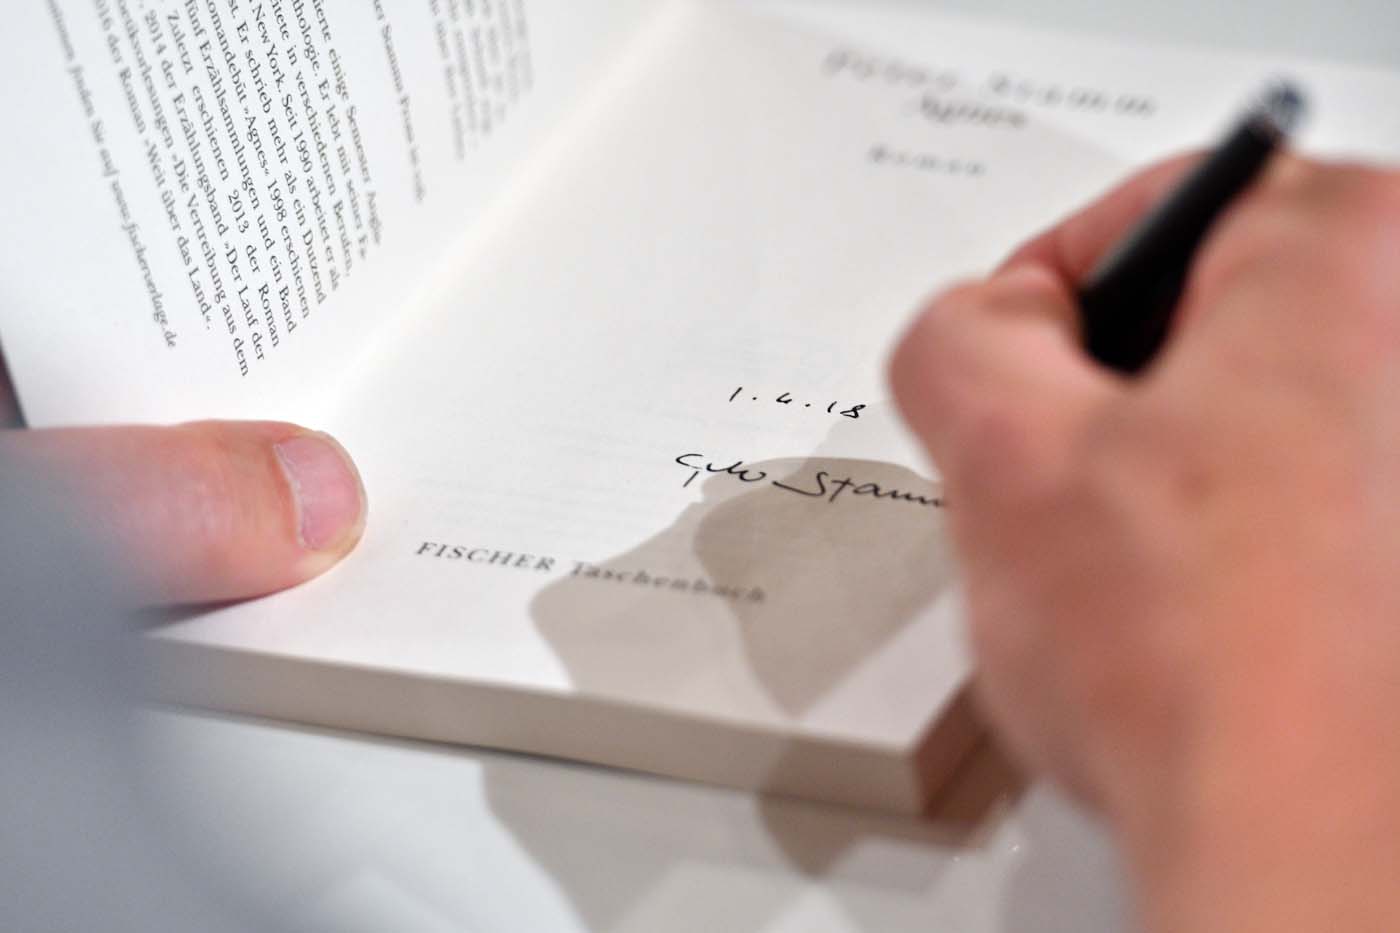 ierte einige Semester Angli-
thologie. Er lebt mit seiner Fa-
eitete in verschiedenen Berufen,
New York. Seit 1990 arbeitet er als
st. Er schrieb mehr als ein Dutzend
omandebüt »Agnes« 1998 erschienen
ünf Erzählsammlungen und ein Band
Zuletzt erschienen 2013 der Roman
2014 der Erzählungsband »Der Lauf der
orlesungen »Die Vertreibung aus dem
016 der Roman »Weit über das Land«.
finden Sie auf www.fischerverlage.de
Peter Stamm
Agnes
Roman
1.4.18
Stamm
FISCHER Taschenbuch